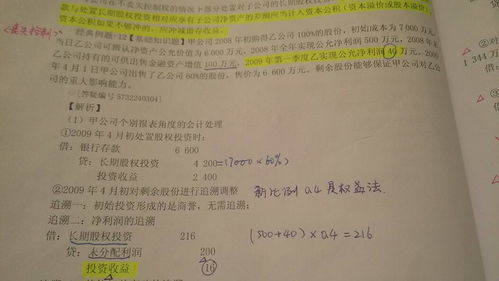 款与处置长期股权投资相对应享有子公司净资产的差额应当计入资本公积（资本溢价或股本溢价），
资本公积如果不够冲的，应冲减留存收益。
经典例题-12【基础知识题】甲公司2008年初购得乙公司100%的股份，初始成本为7 000万元，
当日乙公司可辨认净资产公允价值为6 000万元，2008年全年实现公允净利润500万元，2008年末
乙公司持有的可供出售金融资产增值100万元，2009年第一季度乙实现公允净利润40万元，2009
年4月1日甲公司出售了乙公司60%的股份，售价为6 600万元，剩余股份能够保证甲公司对乙公
司的重大影响能力。
[答疑编号5732240304]
【解析】
（1）甲公司个别报表角度的会计处理
①2009年4月初处置股权投资时：
借：银行存款 6 600
贷：长期股权投资 4 200 =(7000×60%)
投资收益 2 400
②2009年4月初对剩余股份进行追溯调整 新比例0.4是权益法.
追溯一：初始投资形成的是商誉，无需追溯；
追溯二：净利润的追溯
借：长期股权投资 216 (500+40)×0.4=216
贷：未分配利润 200
投资收益 16